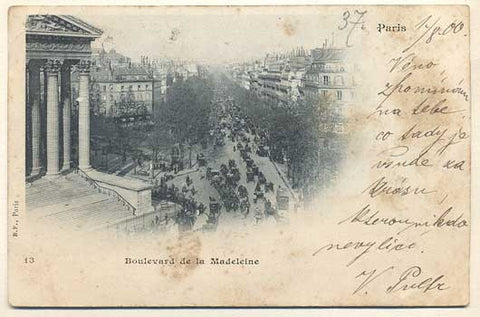 37.
Paris
1/8.00.
Věno
zpomínám
na sebe
co tady je
všude za
krásu,
kterou nikdo
nevylíčí.
V.
B.F., Paris
13
Boulevard de la Madeleine